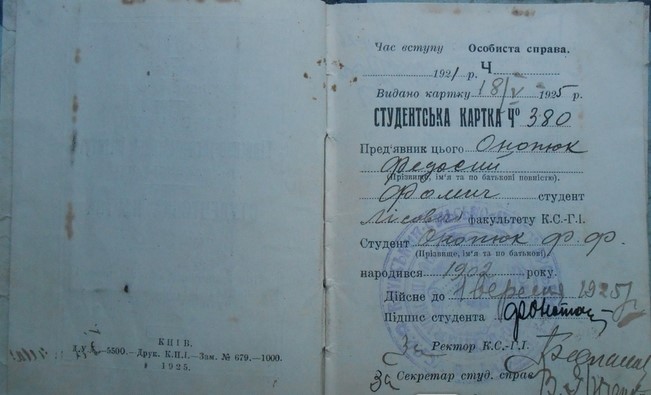 КИЇВ.
5500.— Друк. К.П.І.— Зам. № 679.—1000.
1925.
Час вступу Особиста справа.
1921 р. Ч
Видано картку 18/V 1925 р.
СТУДЕНТСЬКА КАРТКА Ч° 380
Пред'явник цього Онопюк
Федосий
(Прізвище, ім'я та по батькові повністю).
Фомич студент
Лісовий факультету К.С.-Г.І.
Студент Онопюк Ф. Ф.
(Прізвище, ім'я та по батькові).
народився 1902 року.
Дійсне до 1 вересня 1925 р.
Підпис студента
За Ректор К.С.-Г.І.
За Секретар студ. справ